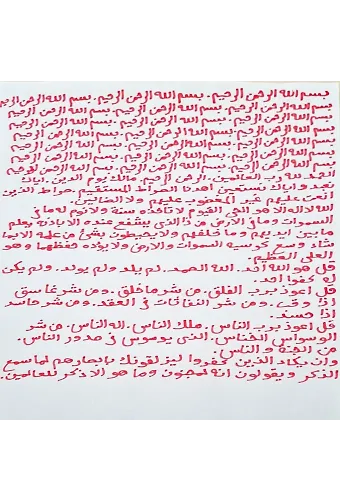 بسم الله الرحمن الرحيم . بسم الله الرحمن الرحيم . بسم الله الرحمن الرحيم
بسم الله الرحمن الرحيم . بسم الله الرحمن الرحيم . بسم الله الرحمن الرحيم
بسم الله الرحمن الرحيم . بسم الله الرحمن الرحيم . بسم الله الرحمن الرحيم
بسم الله الرحمن الرحيم . بسم الله الرحمن الرحيم . بسم الله الرحمن الرحيم
بسم الله الرحمن الرحيم . بسم الله الرحمن الرحيم . بسم الله الرحمن الرحيم
بسم الله الرحمن الرحيم . بسم الله الرحمن الرحيم . بسم الله الرحمن الرحيم
بسم الله الرحمن الرحيم . بسم الله الرحمن الرحيم . بسم الله الرحمن الرحيم
الحمد لله رب العالمين . الرحمن الرحيم . مالك يوم الدين . اياك
نعبد واياك نستعين اهدنا الصراط المستقيم . صراط الذين
انعمت عليهم غير المغضوب عليهم ولا الضالين .
الله لا اله الا هو الحي القيوم لا تأخذه سنة ولا نوم له ما في
السموات وما في الارض من ذا الذي يشفع عنده الا باذنه يعلم
ما بين ايديهم وما خلفهم ولا يحيطون بشئ من علمه الا بما
شاء وسع كرسيه السموات والارض ولا يؤده حفظهما وهو
العلى العظيم .
قل هو الله احد . الله الصمد . لم يلد ولم يولد . ولم يكن
له كفوا احد .
قل اعوذ برب الفلق . من شر ما خلق . ومن شر غاسق
اذا وقب . ومن شر النفاثات في العقد . ومن شر حاسد
اذا حسد .
قل اعوذ برب الناس . ملك الناس . اله الناس . من شر
الوسواس الخناس . الذى يوسوس في صدور الناس .
من الجنة و الناس .
وان يكاد الذين كفروا ليزلقونك بابصارهم لما سمع
الذكر و يقولون انه لمجنون وما هو الا ذكر للعالمين .